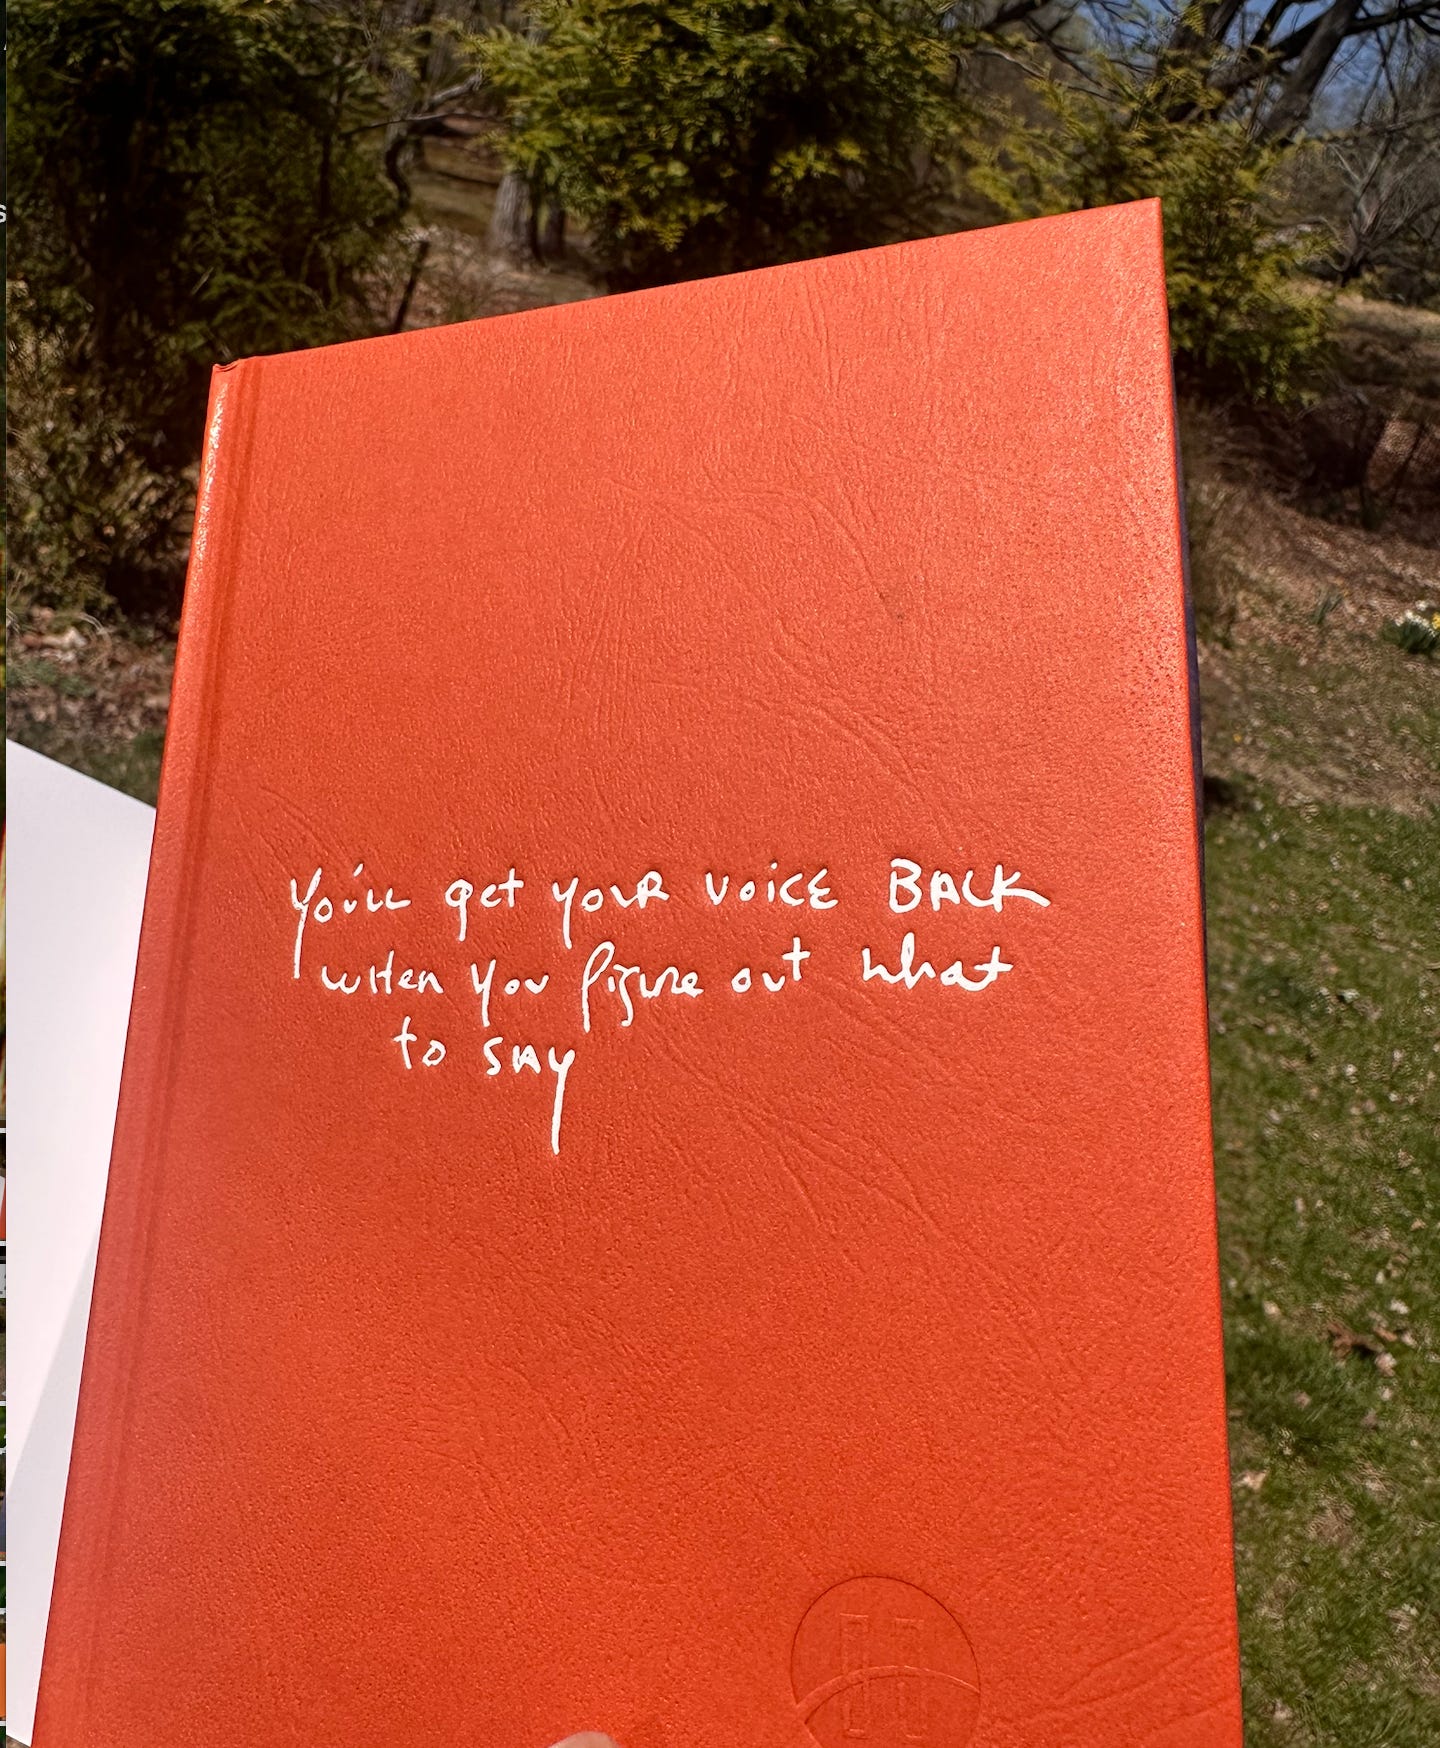 You'll get your voice BACK
when you figure out what
to say
H